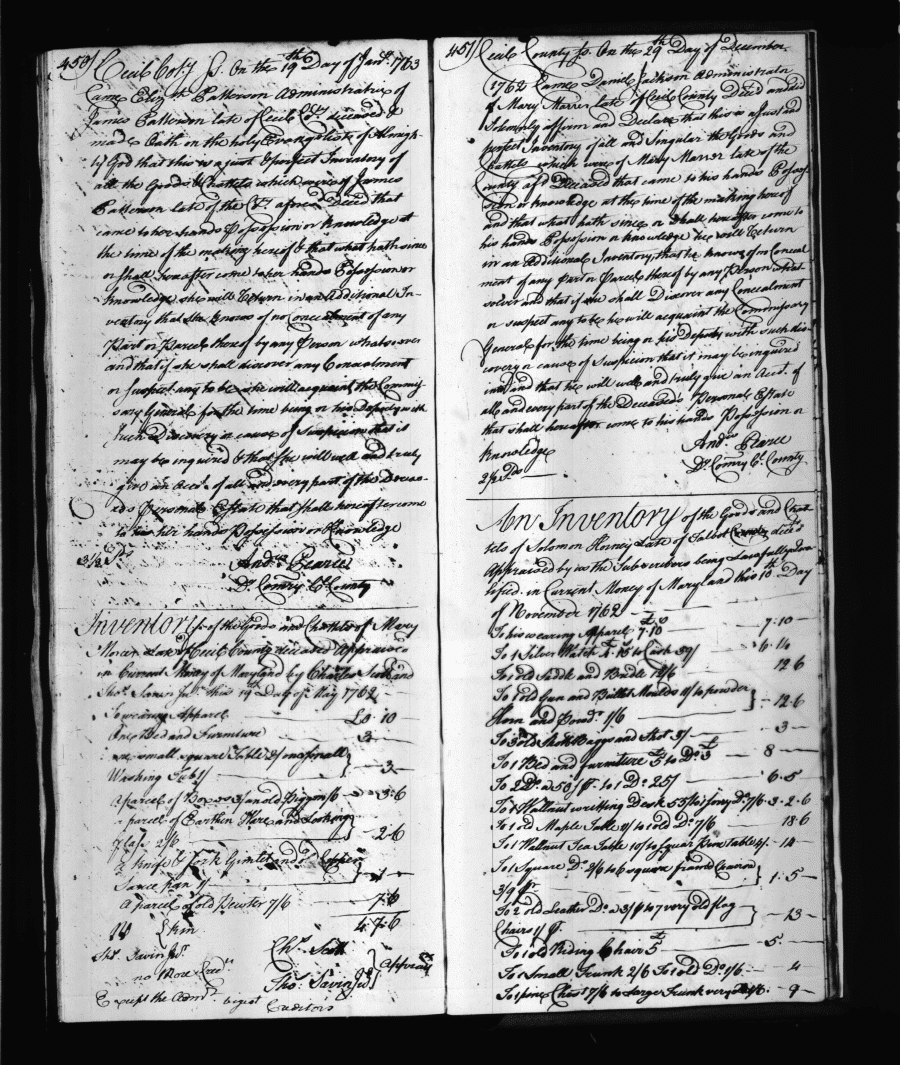 450/
Cecil Co.ty Ss. On the 19th Day of Jany. 1763
Came Eliz.th Patterson Administratrix of
James Patterson late of Cecil Cty. deceased &
made Oath on the holy Evangelists of Almigh-
ty God that this is a just & perfect Inventory of
all the Goods & Chattels which were of James
Patterson late of the Cty. afores.d Deced that
came to her hands Possession or knowledge at
the time of the making hereof & that what hath since
or shall hereafter come to her hands Possession or
knowledge she will Return in an Additional In-
ventory that She knows of no Concealment of any
Part or Parcel thereof by any Person whatsoever
and that if she shall discover any Concealment
or suspect any to be she will acquaint the Commis-
sary General for the time being or his Deputy with
such Discovery or cause of Suspicion that it
may be inquired & that She will well and truly
give an Acc.t of all and every part of the Deceas-
eds Personal Estate that shall hereafter come
to her hands Possession or Knowledge
3 1/2 Ps. And.w Pearce
D. Comry Cl. County
Inventory of the Goods and Chattels of Mary
late of Cecil County deceased Appraised
in Current Money of Maryland by Charles Scott and
Tho.s Savin Jun.r this 19th Day of May 1762
To wearing Apparel £0.10
One Bed and Furniture 3
one small square Table 2/ one small
Washing Tub 1/ } 3
A parcel of Boxes 3/ an old Piggon /6 3.6
a parcel of Earthen Ware and Looking
Glass 2/6 } 2.6
a knife & fork Gimlet and o. Copper
Sauce pan 1/ } 1
A parcel of old Pewter 7/6 7.6
4.7.6
No } kin
Tho.s Savin Jr. Ch.s Scott
no More Cred.rs Tho.s Savin Jr. } Apprais.rs
Except the Adm.r Creditors
451/
Cecil County Ss. On the 29th Day of December
1762 Came Daniel Jackson Administrator
of Mary Marrer late of Cecil County Deced and did
Solemnly affirm and Declare that this is a just and
perfect Inventory of all and Singular the Goods and
Chattels which were of Mary Marrer late of the
County af.d Deceased that came to his hands Posses-
sion or knowledge at the time of the making hereof
and that what hath since or shall hereafter come to
his hands Possession or knowledge he will Return
in an Additional Inventory, that he knows of no Conceal
ment of any Part or Parcel thereof by any Person what-
soever and that if he shall Discover any Concealment
or suspect any to be he will acquaint the Commissary
General for the time being or his Deputy with such dis-
covery or cause of Suspicion that it may be inquired
into and that he will well and truly give an Acct. of
all and every part of the Deceaseds Personal Estate
that shall hereafter come to his hands Possession or
knowledge And.w Pearce
2 1/2 Ps. D. Comry Cl. County
An Inventory of the Goods and Chat-
tels of Solomon Horney late of Talbot County dece.d
Appraised by us the Subscribers being Lawfully quali-
fied in Current Money of Maryland this 10th Day
of November 1762
To his wearing Apparel £7.10 7.10
To 1 Silver Watch to Cash 39/
To 1 old Saddle and Bridle 12/6 12.6
To 1 old Gun and Bullet Moulds 11/ to powder
Horn and 1/6 } 12.6
To 3 old Shott Baggs and Shot 3/ 3
To 1 Bed and furniture £5 to 1 D.o £3 8
To 2 D.o @ 50/ p. to 1 D.o 25/ 6.5
To 1 Wallnut writting Desk 55/ to 1 pine D.o 7/6 3.2.6
To 1 old Maple Table 11/ to 1 old D.o 7/6 18.6
To 1 Walnut Tea Table 10/ to Square Pine Table 4/ 14
To 1 Square D.o 2/6 to 6 square framd
3/9 p. } 1.5
To 2 old Leather D.o @ 3/ p. to 7 very old flag
Chairs 1/ p. } 13
To 1 old Riding Chair £5 5
To 1 Small Trunk 2/6 To 1 old D.o 1/6 4
To 1 pine Chest 7/6 to Large Trunk very Old 1/6 9